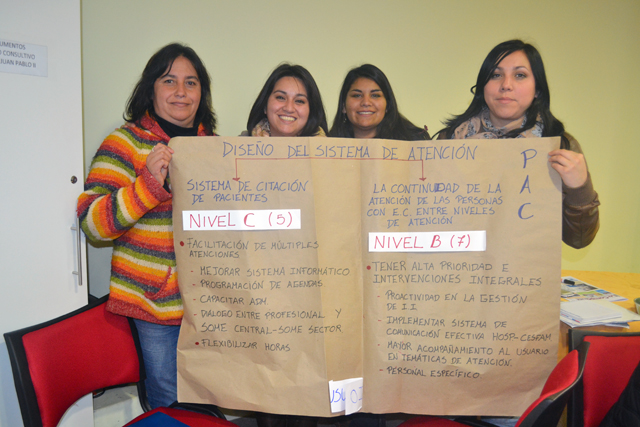 UMENTOS
CONSULTIVO
JUAN PABLO II
DISEÑO DEL SISTEMA DE ATENCIÓN
PAC
SISTEMA DE CITACIÓN
DE PACIENTES
NIVEL C (5)
• FACILITACIÓN DE MÚLTIPLES
ATENCIONES
- MEJORAR SISTEMA INFORMÁTICO
- PROGRAMACIÓN DE AGENDAS
- CAPACITAR ASM
- DIALOGO ENTRE PROFESIONAL Y
SOME CENTRAL-SOME SECTOR
• FLEXIBILIZAR HORAS
LA CONTINUIDAD DE LA
ATENCIÓN DE LAS PERSONAS
CON E.C. ENTRE NIVELES
DE ATENCIÓN
NIVEL B (7)
• TENER ALTA PRIORIDAD E
INTERVENCIONES INTEGRALES
- PROACTIVIDAD EN LA GESTIÓN
DE I.I.
- IMPLEMENTAR SISTEMA DE
COMUNICACIÓN EFECTIVA HOSP-CESFAM
- MAYOR ACOMPAÑAMIENTO AL USUARIO
EN TEMÁTICAS DE ATENCIÓN.
- PERSONAL ESPECÍFICO